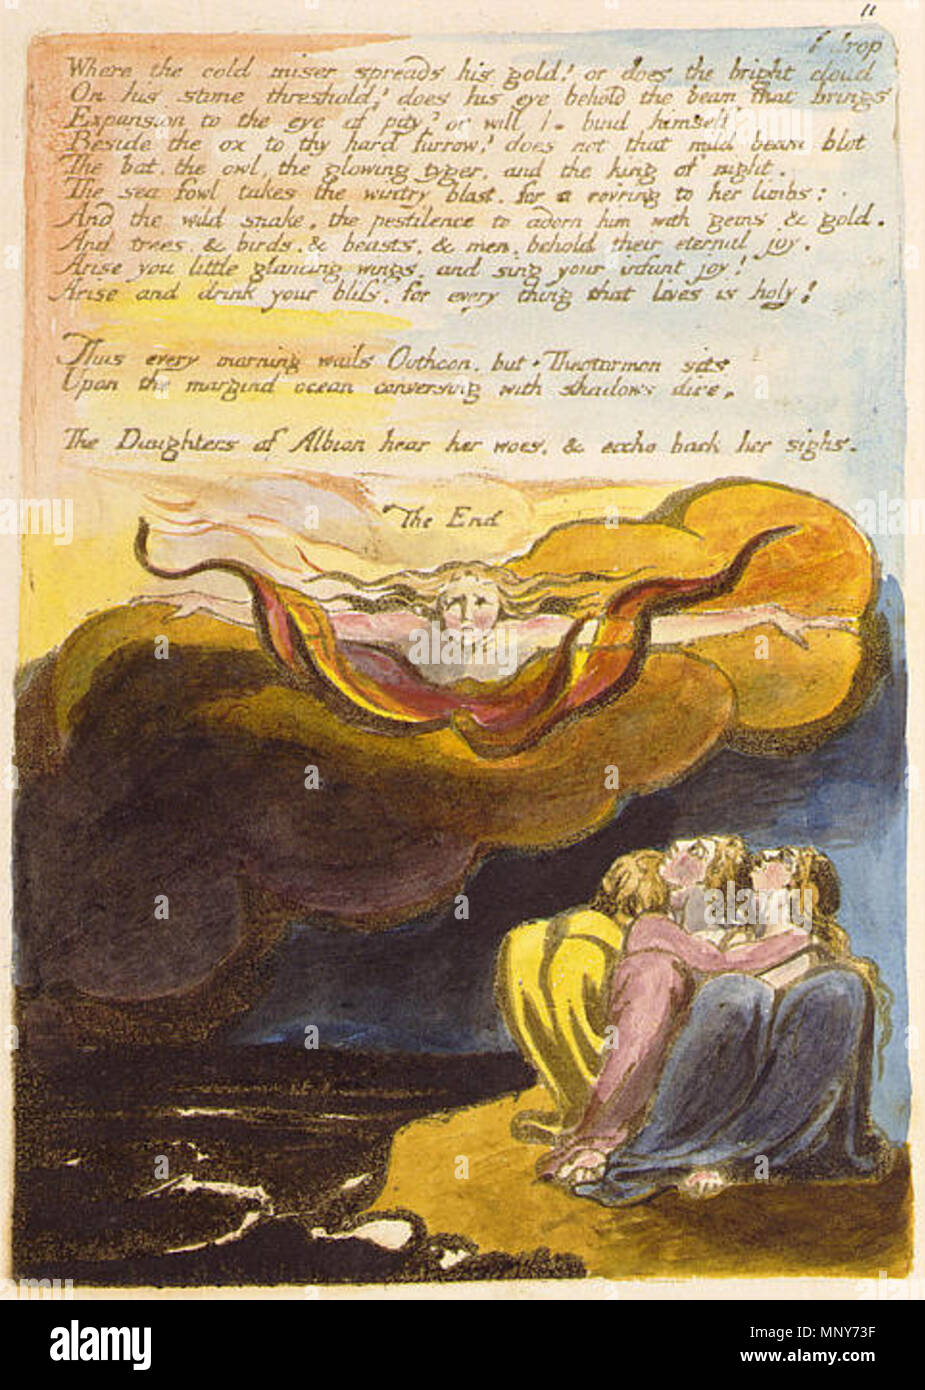 11
& drop
Where the cold miser spreads his gold? or does the bright cloud
On his stone threshold? does his eye behold the beam that brings
Expansion to the eye of pity? or will he bind himself
Beside the ox to thy hard furrow? does not that mild beam blot
The bat, the owl, the glowing tyger, and the king of night.
The sea fowl takes the wintry blast, for a cov'ring to her limbs:
And the wild snake, the pestilence to adorn him with gems & gold.
And trees, & birds, & beasts, & men, behold their eternal joy.
Arise you little glancing wings, and sing your infant joy!
Arise and drink your bliss, for every thing that lives is holy!
Thus every morning wails Oothoon, but Theotormon sits
Upon the margind ocean conversing with shadows dire.
The Daughters of Albion hear her woes, & eccho back her sighs.
The End
a
alamy
Image ID: MNY73F
www.alamy.com